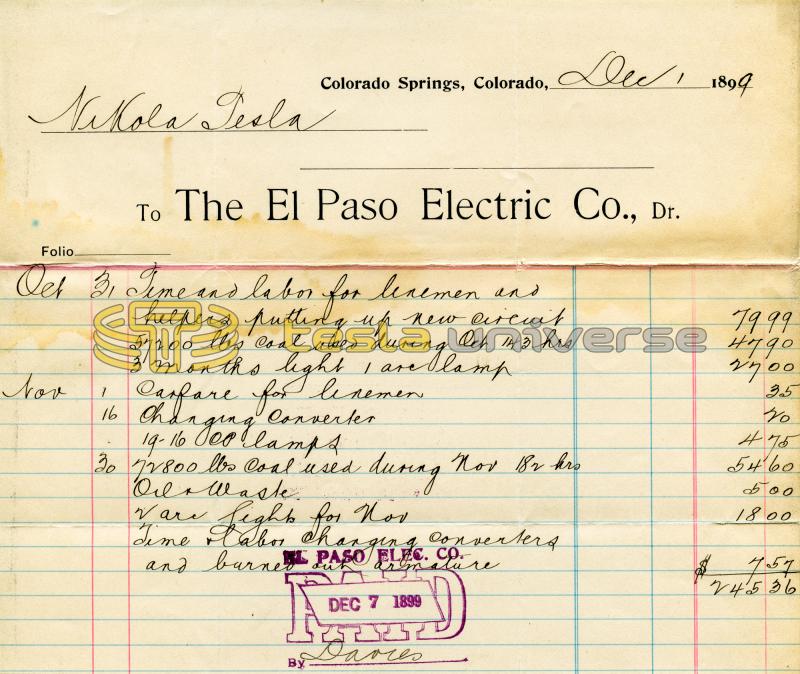 Colorado Springs, Colorado, Dec 1 1899
Nikola Tesla
To The El Paso Electric Co., Dr.
Folio
Oct 31 Time and labor for linemen and
helpers putting up new circuit 79 99
57200 lbs coal used during Oct 143 hrs 47 90
3 months light 1 arc lamp 27 00
tesla universe
Nov 1 Carfare for linemen 35
16 Changing converter 20
19-16 CP lamps 4 75
30 72800 lbs Coal used during Nov 182 hrs 54 60
Oil & Waste 5 00
2 arc lights for Nov 18 00
Time & labor Changing converters
and burned out armature $ 7 57
245 36
EL PASO ELEC. CO.
PAID
DEC 7 1899
By Davies